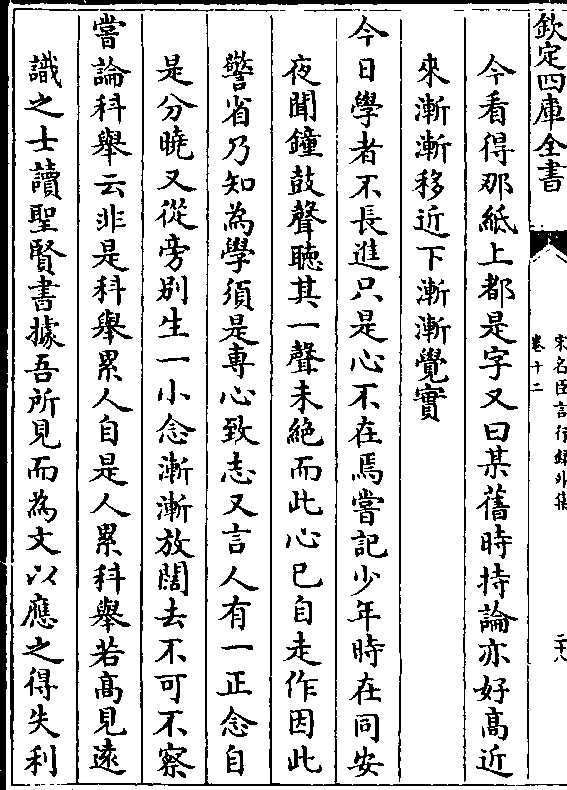 欽定四庫全書
宋名臣言行録外集
卷十二
二十八
今看得那紙上都是字又曰某舊時持論亦好髙近
來漸漸移近下漸漸覺實
今日學者不長進只是心不在焉嘗記少年時在同安
夜聞鐘鼓聲聽其一聲未絶而此心已自走作因此
警省乃知為學須是専心致志又言人有一正念自
是分曉又從旁别生一小念漸漸放闊去不可不察
嘗論科舉云非是科舉累人自是人累科舉若髙見逺
識之士讀聖賢書據吾所見而為文以應之得失利